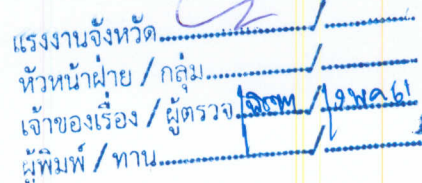 แรงงานจังหวัด................................/................
หัวหน้าฝ่าย / กลุ่ม......................../................
เจ้าของเรื่อง / ผู้ตรวจ............/ ๖ พค ๖๑
ผู้พิมพ์ / ทาน................................/................